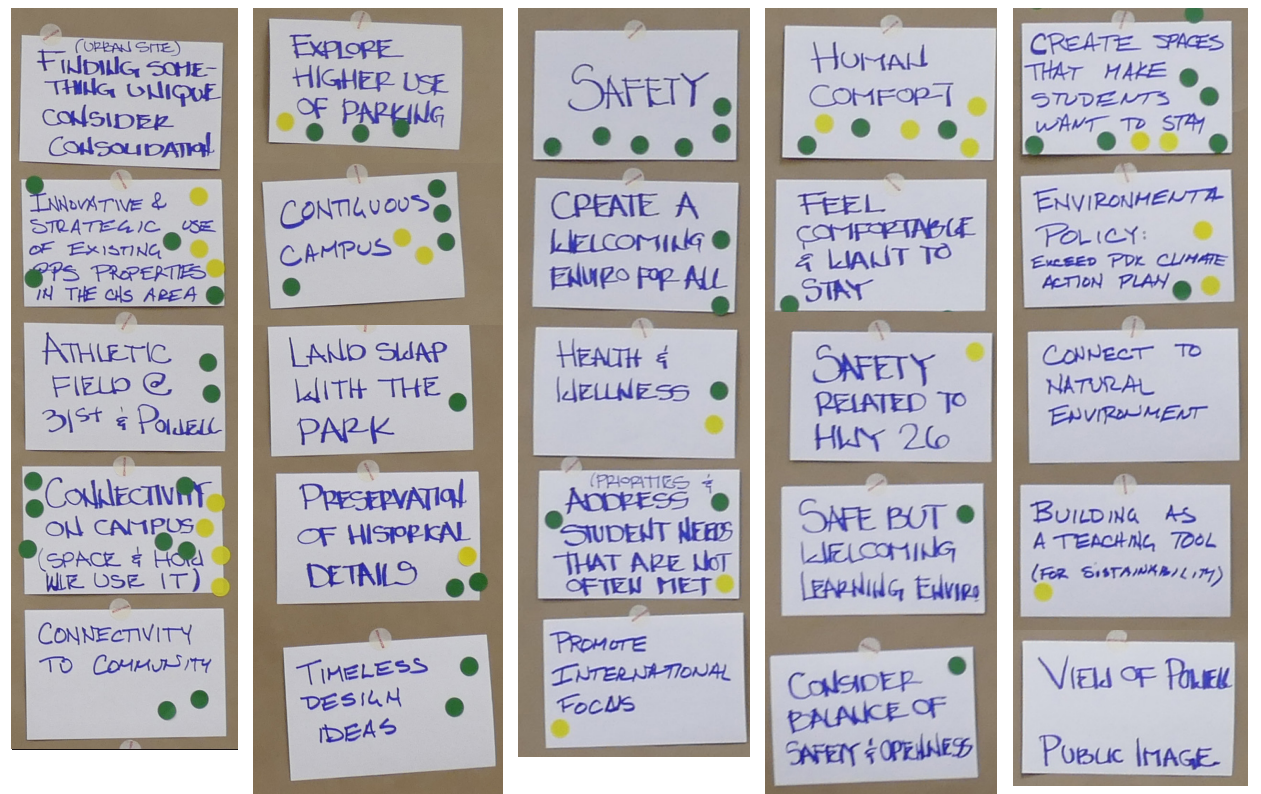 (URBAN SITE)
FINDING SOME-
THING UNIQUE
CONSIDER
CONSOLIDATION
INNOVATIVE &
STRATEGIC USE
OF EXISTING
PPS PROPERTIES
IN THE CHS AREA
ATHLETIC
FIELD @
31ST & POWELL
CONNECTIVITY
ON CAMPUS
(SPACE & HOW
WE USE IT)
CONNECTIVITY
TO COMMUNITY
EXPLORE
HIGHER USE
OF PARKING
CONTIGUOUS
CAMPUS
LAND SWAP
WITH THE
PARK
PRESERVATION
OF HISTORICAL
DETAILS
TIMELESS
DESIGN
IDEAS
SAFETY
CREATE A
WELCOMING
ENVIRO FOR ALL
HEALTH &
WELLNESS
(PRIORITIES &
ADDRESS
STUDENT NEEDS
THAT ARE NOT
OFTEN MET
PROMOTE
INTERNATIONAL
FOCUS
HUMAN
COMFORT
FEEL
COMFORTABLE
& WANT TO
STAY
SAFETY
RELATED TO
HWY 26
SAFE BUT
WELCOMING
LEARNING ENVIRO
CONSIDER
BALANCE OF
SAFETY & OPENNESS
CREATE SPACES
THAT MAKE
STUDENTS
WANT TO STAY
ENVIRONMENTAL
POLICY:
EXCEED PDX CLIMATE
ACTION PLAN
CONNECT TO
NATURAL
ENVIRONMENT
BUILDING AS
A TEACHING TOOL
(FOR SISTAINABILITY)
VIEW OF POWELL
PUBLIC IMAGE